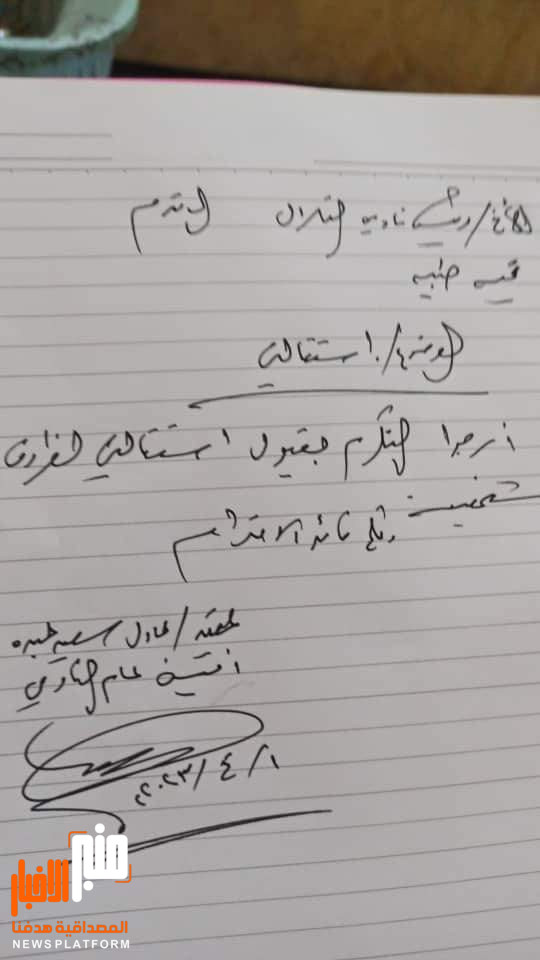 الاخ/ رئيس نادي التلال المحترم
تحيه طيبه
الموضوع/ استقالتي
ارجوا التكرم بقبول استقالتي لظروف
شخصية ولكم فائق الاحترام
مقدمه/ عادل سعيد
امين عام النادي
٢٠٢٣/٤/١
منبر الاخبار
المصداقية هدفنا
NEWSPLATFORM